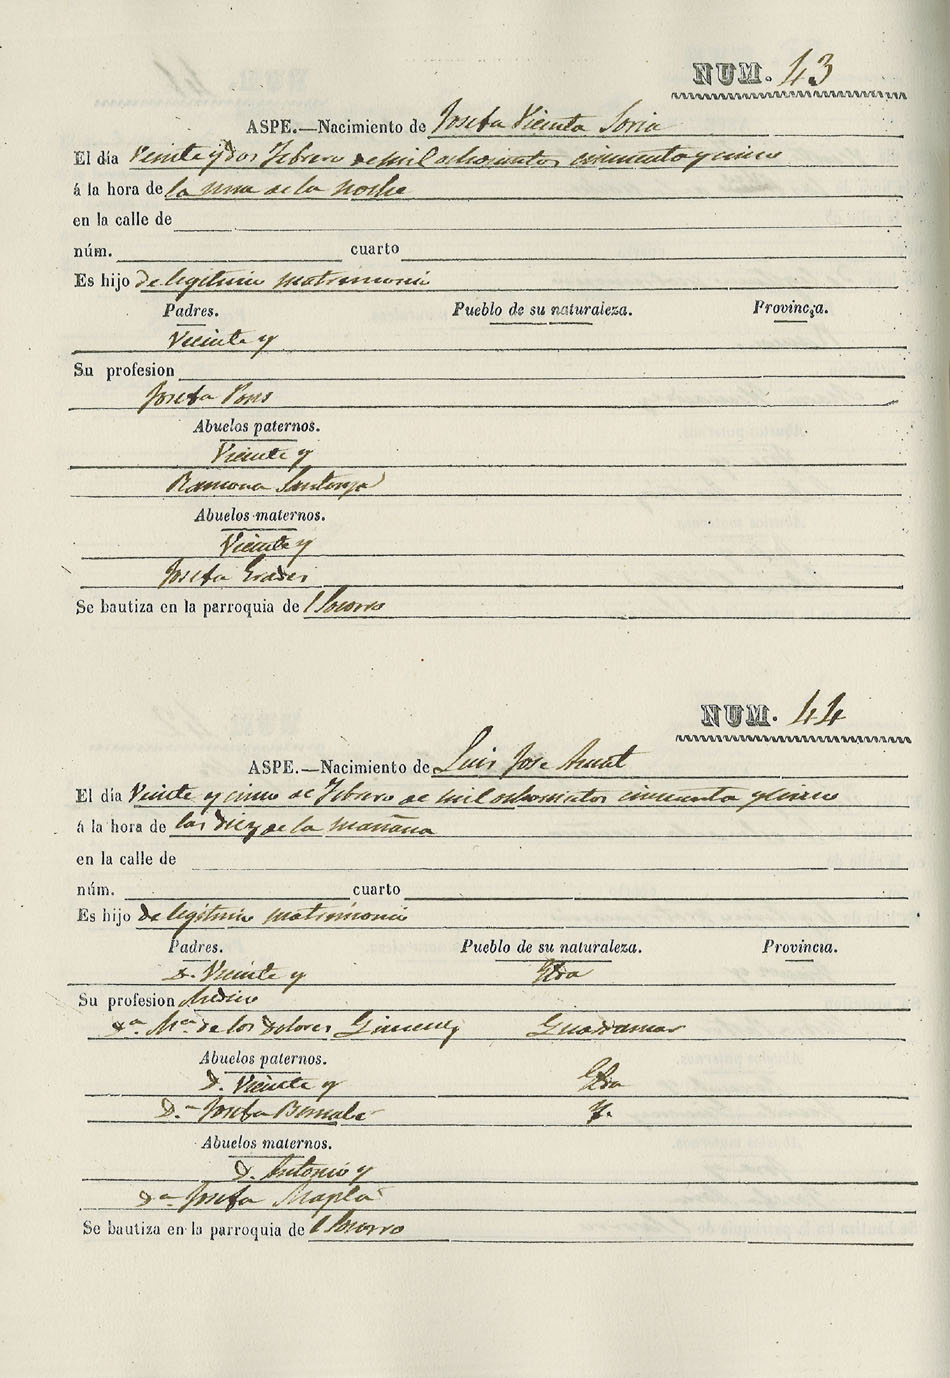 NUM. 43
ASPE.—Nacimiento de Josefa Vicenta Soria
El día Veinte y dos Febrero de mil ochocientos cincuenta y cinco
á la hora de la una de la noche
en la calle de
núm. cuarto
Es hijo de legitimo matrimonio
Padres. Pueblo de su naturaleza. Provincia.
Vicente y
Su profesion
Josefa Pons
Abuelos paternos.
Vicente y
Ramona Santonja
Abuelos maternos.
Vicente y
Josefa
Se bautiza en la parroquia de l Socorro
NUM. 44
ASPE.—Nacimiento de Luis Jose
El día Veinte y cinco de Febrero de mil ochocientos cincuenta y cinco
á la hora de las diez de la mañana
en la calle de
núm. cuarto
Es hijo de legitimo matrimonio
Padres. Pueblo de su naturaleza. Provincia.
D. Vicente y
Su profesion Medico
Dª Mª de los Dolores Gimenez Guardamar
Abuelos paternos.
D. Vicente y
Dª Josefa
Abuelos maternos.
D. Antonio y
Dª Josefa Maplá
Se bautiza en la parroquia de l Socorro